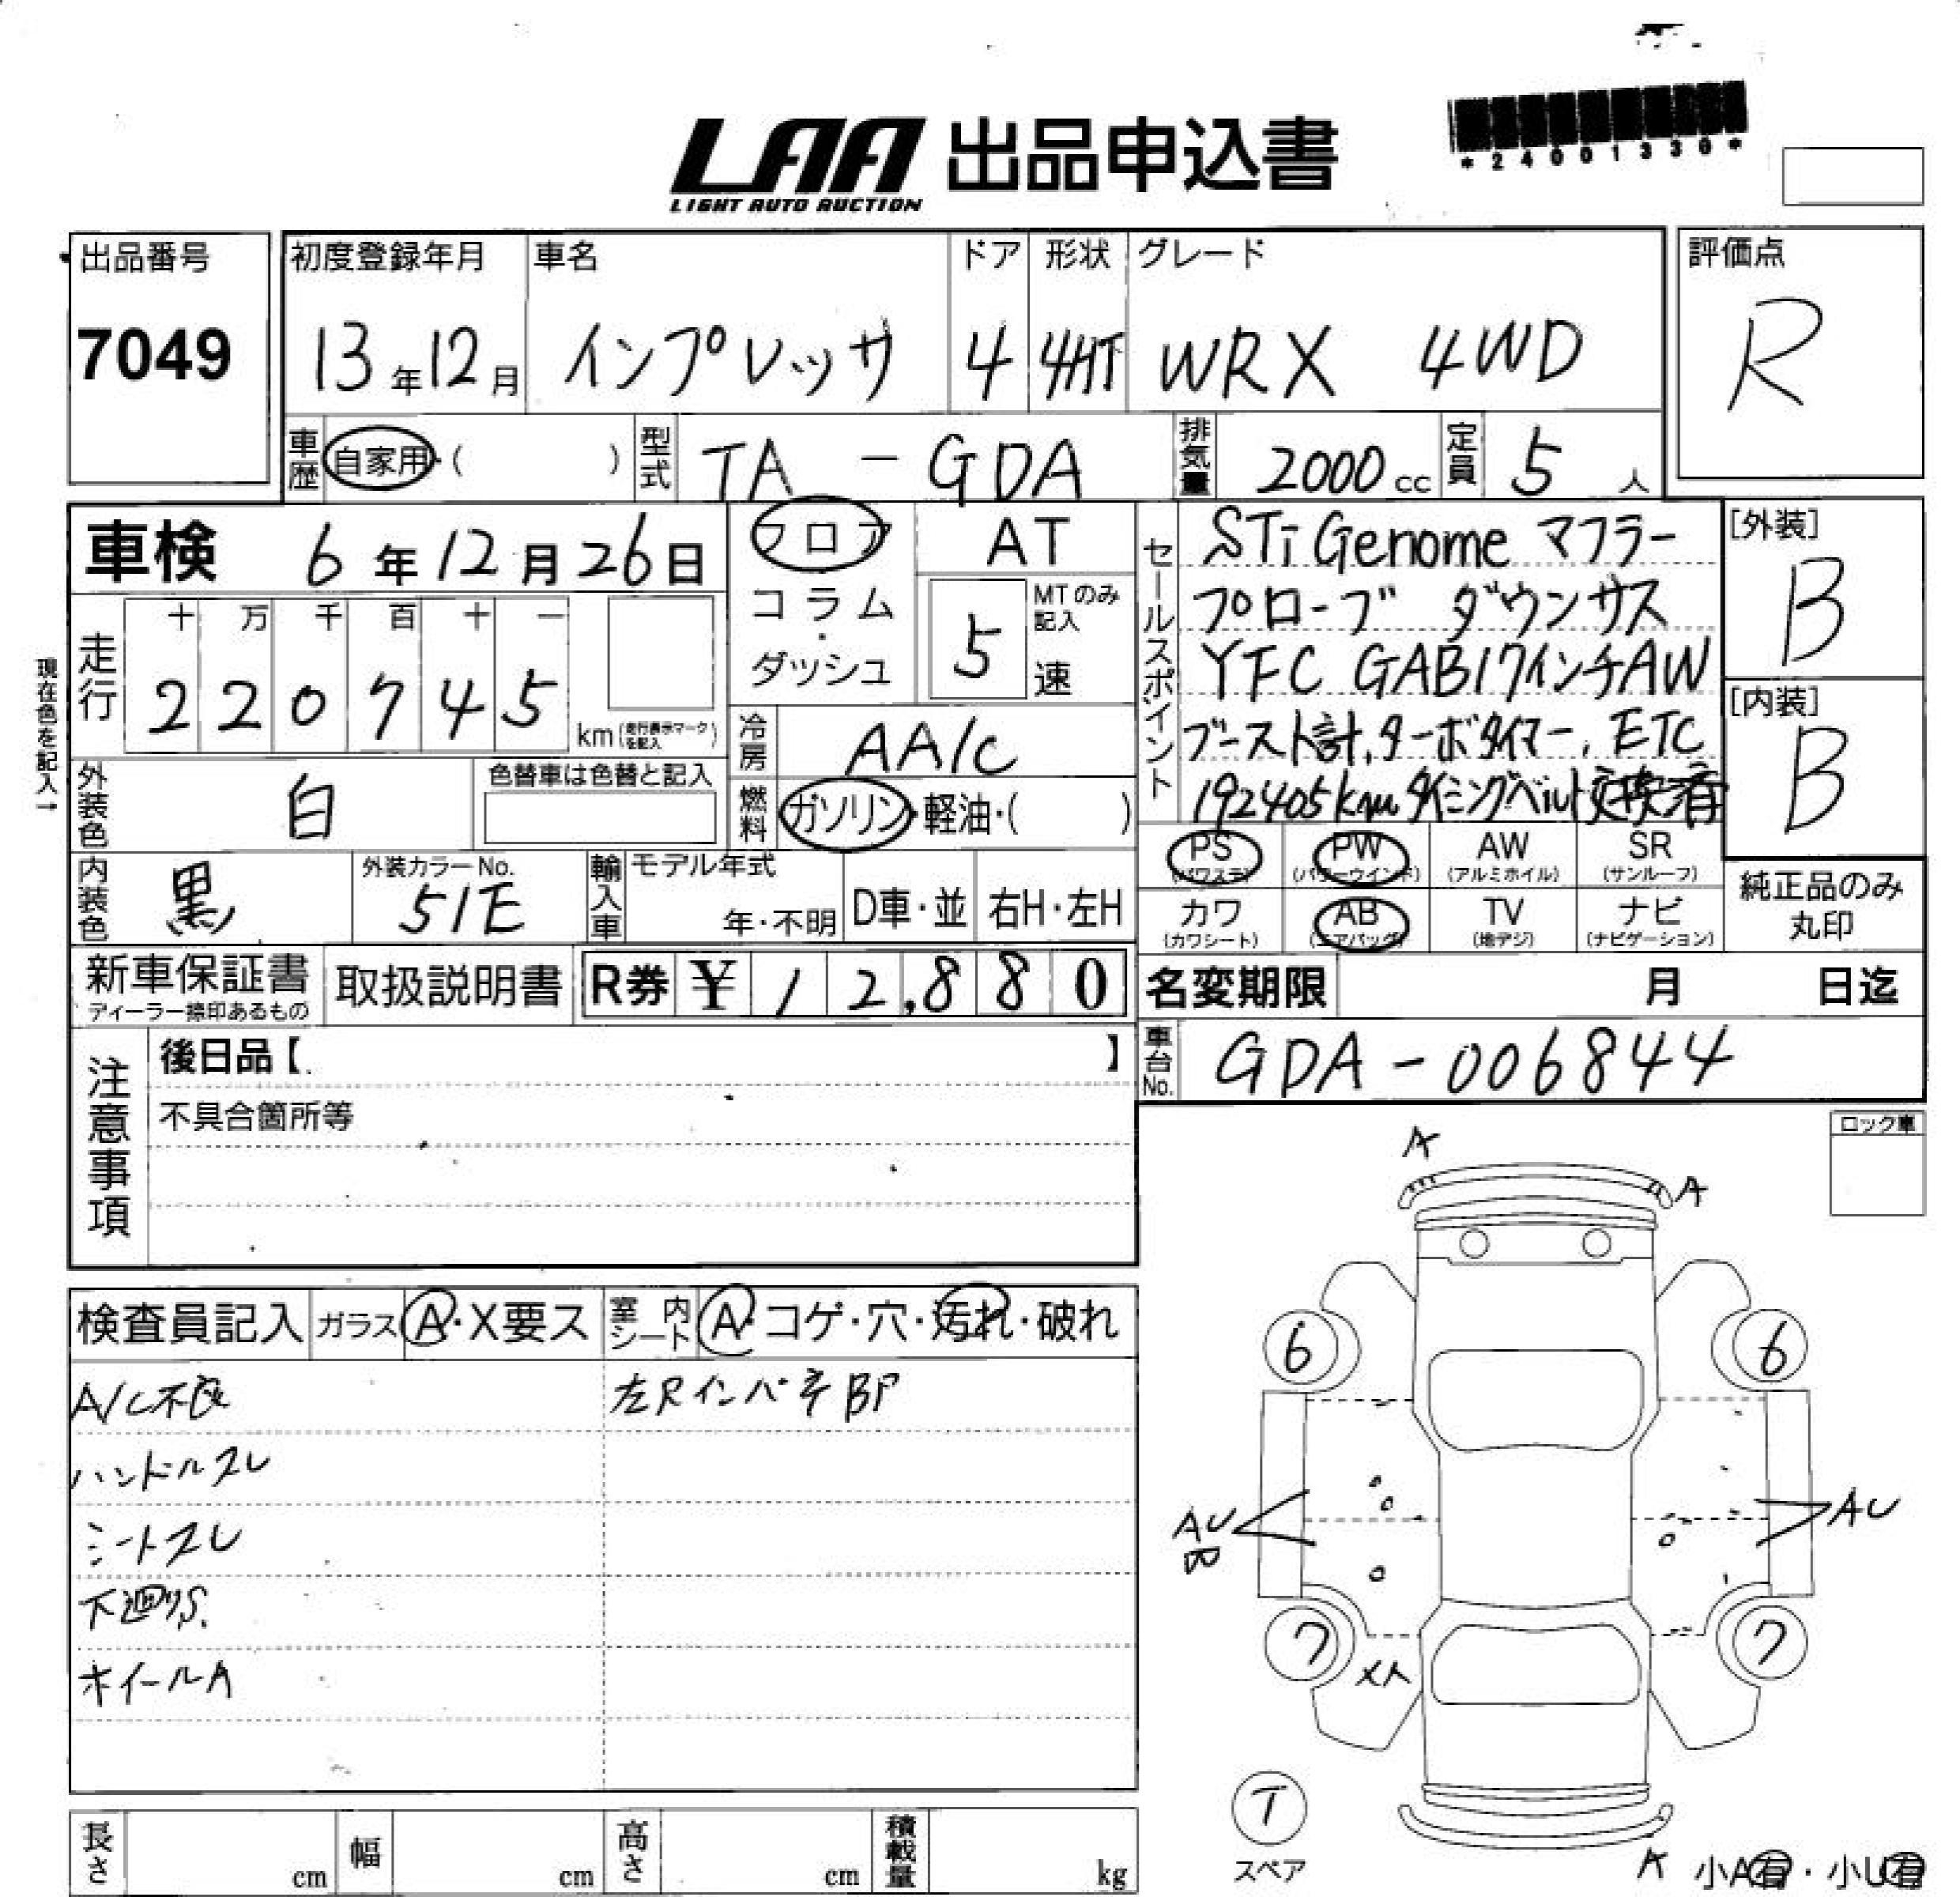 LAA 出品申込書
LIGHT AUTO AUCTION
*24001330*
出品番号
7049
初度登録年月
13年12月
車名
インプレッサ
ドア
4
形状
4HT
グレード
WRX 4WD
評価点
R
車歴 自家用・( )
型式 TA-GDA
排気量 2000cc
定員 5人
車検 6年12月26日
フロア
コラム・ダッシュ
AT
MTのみ記入
5速
セールスポイント
STi Genome マフラー
プローブ ダウンサス
YFC GAB17インチAW
ブースト計,ターボタイマー,ETC
192405km タイミングベルト交換済
[外装]
B
[内装]
B
現在色を記入→
走行
十 万 千 百 十 一
2 2 0 7 4 5 km(走行表示マークを記入)
冷房 AA/C
燃料 ガソリン・軽油・( )
外装色 白
色替車は色替と記入
内装色 黒
外装カラーNo.
51E
輸入車 モデル年式
年・不明 D車・並 右H・左H
PS (パワステ)
PW (パワーウインド)
AW (アルミホイル)
SR (サンルーフ)
カワ (カワシート)
AB (エアバッグ)
TV (地デジ)
ナビ (ナビゲーション)
純正品のみ
丸印
新車保証書
ディーラー捺印あるもの
取扱説明書
R券 ¥ 12,880
名変期限 月 日迄
車台No. GDA-006844
注意事項
後日品【 】
不具合箇所等
ロック車
検査員記入 ガラス A・X要ス
室内シート A・コゲ・穴・汚れ・破れ
A/C不良
左Rインパネ BP
ハンドルスレ
シートスレ
下廻りS.
ホイールA
A
A
6
6
AU
AU
7
7
T
スペア
A
小A有・小U有
長さ cm
幅 cm
高さ cm
積載量 kg